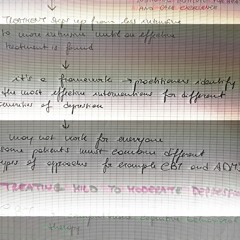 AND USER EXPERIENCE
TREATMENT steps up from less intensive
to more intensive until an effective
treatment is found
↓
it's a framework → practitioners identify
the most effective interventions for different
severities of depression
↓
may not work for everyone
some patients must combine different
types of approaches for example CBT and ADMs
TREATING MILD TO MODERATE DEPRESSION
therapy